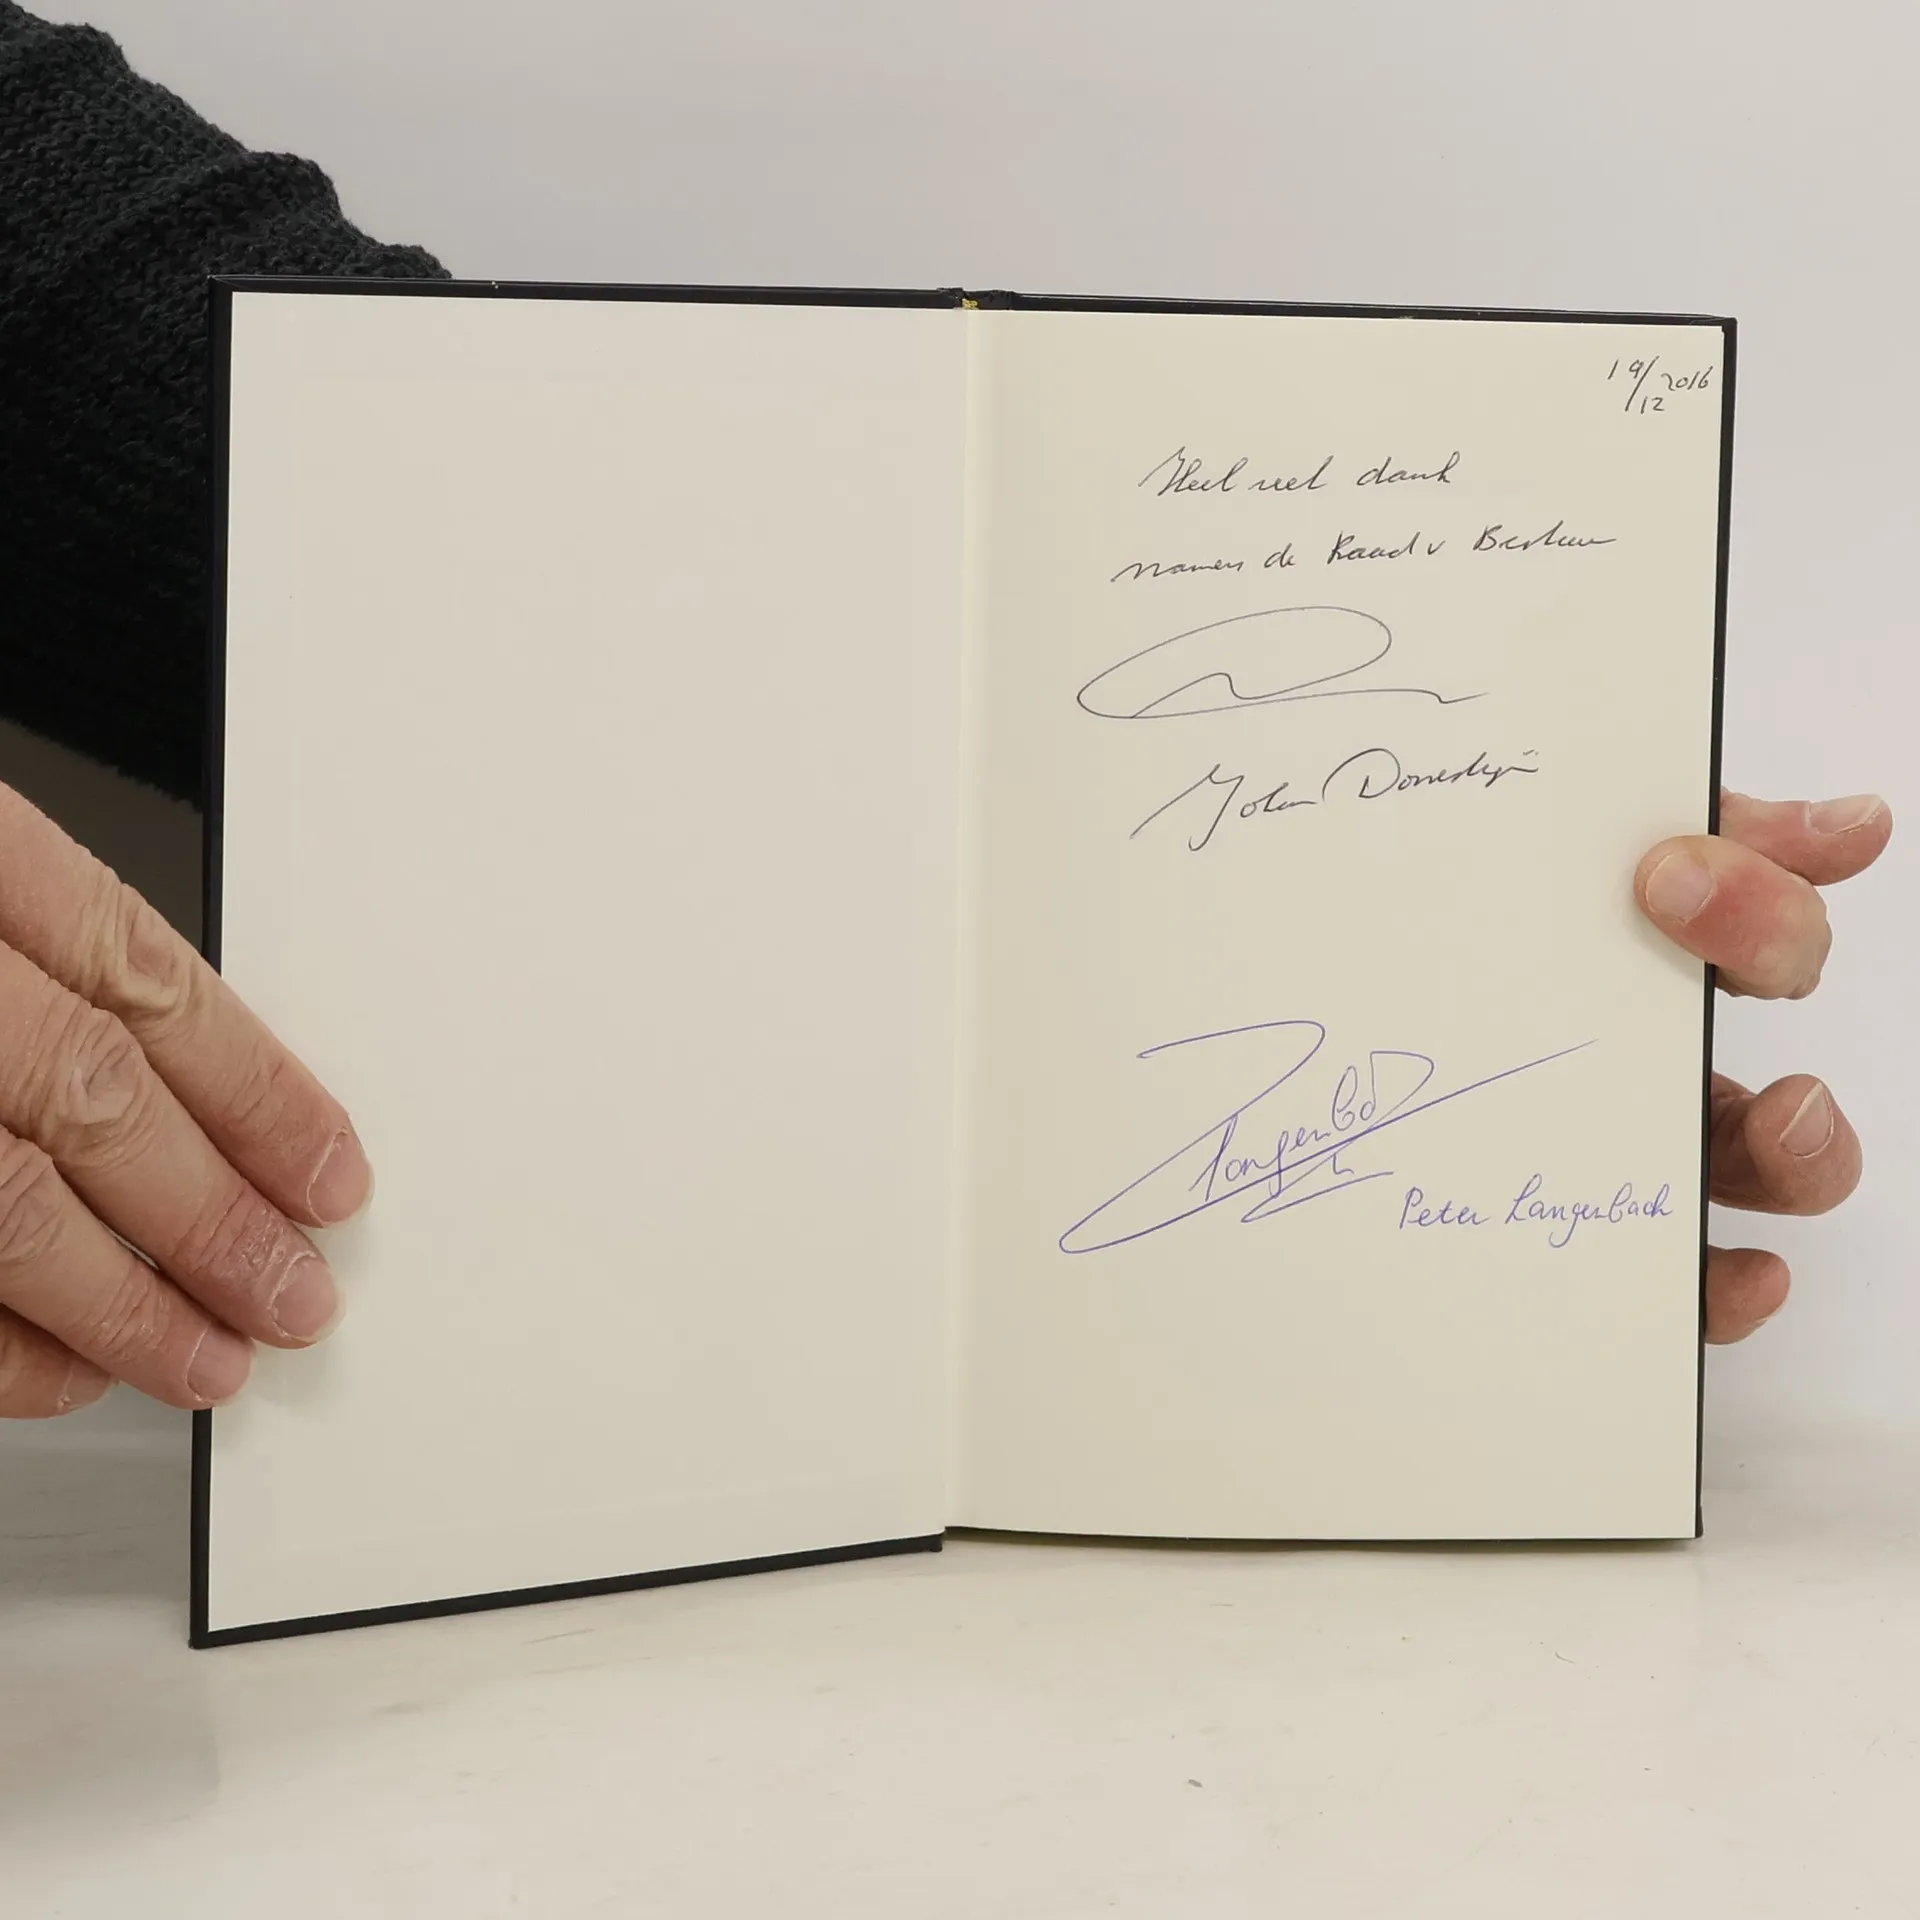 19/12 2016
Heel veel dank
namens de Raad v Bestuur
Johan
Langenbach
Peter Langenbach